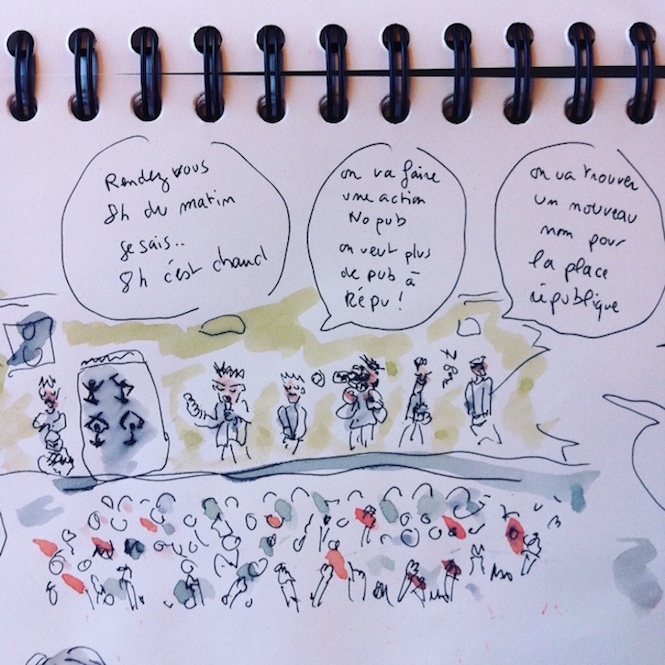 Rendez vous
8h du matin
je sais..
8h c'est chaud
on va faire
une action
No pub
on veut plus
de pub à
Répu !
on va trouver
un nouveau
nom pour
la place
république